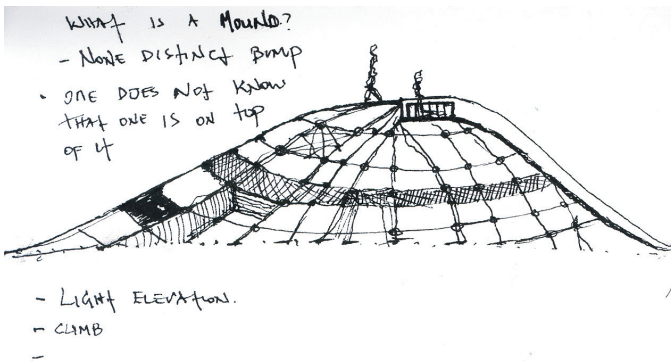 WHAT IS A MOUND?
- NONE DISTINCT BUMP
• ONE DOES NOT KNOW
THAT ONE IS ON TOP
OF IT
- LIGHT ELEVATION.
- CLIMB
-